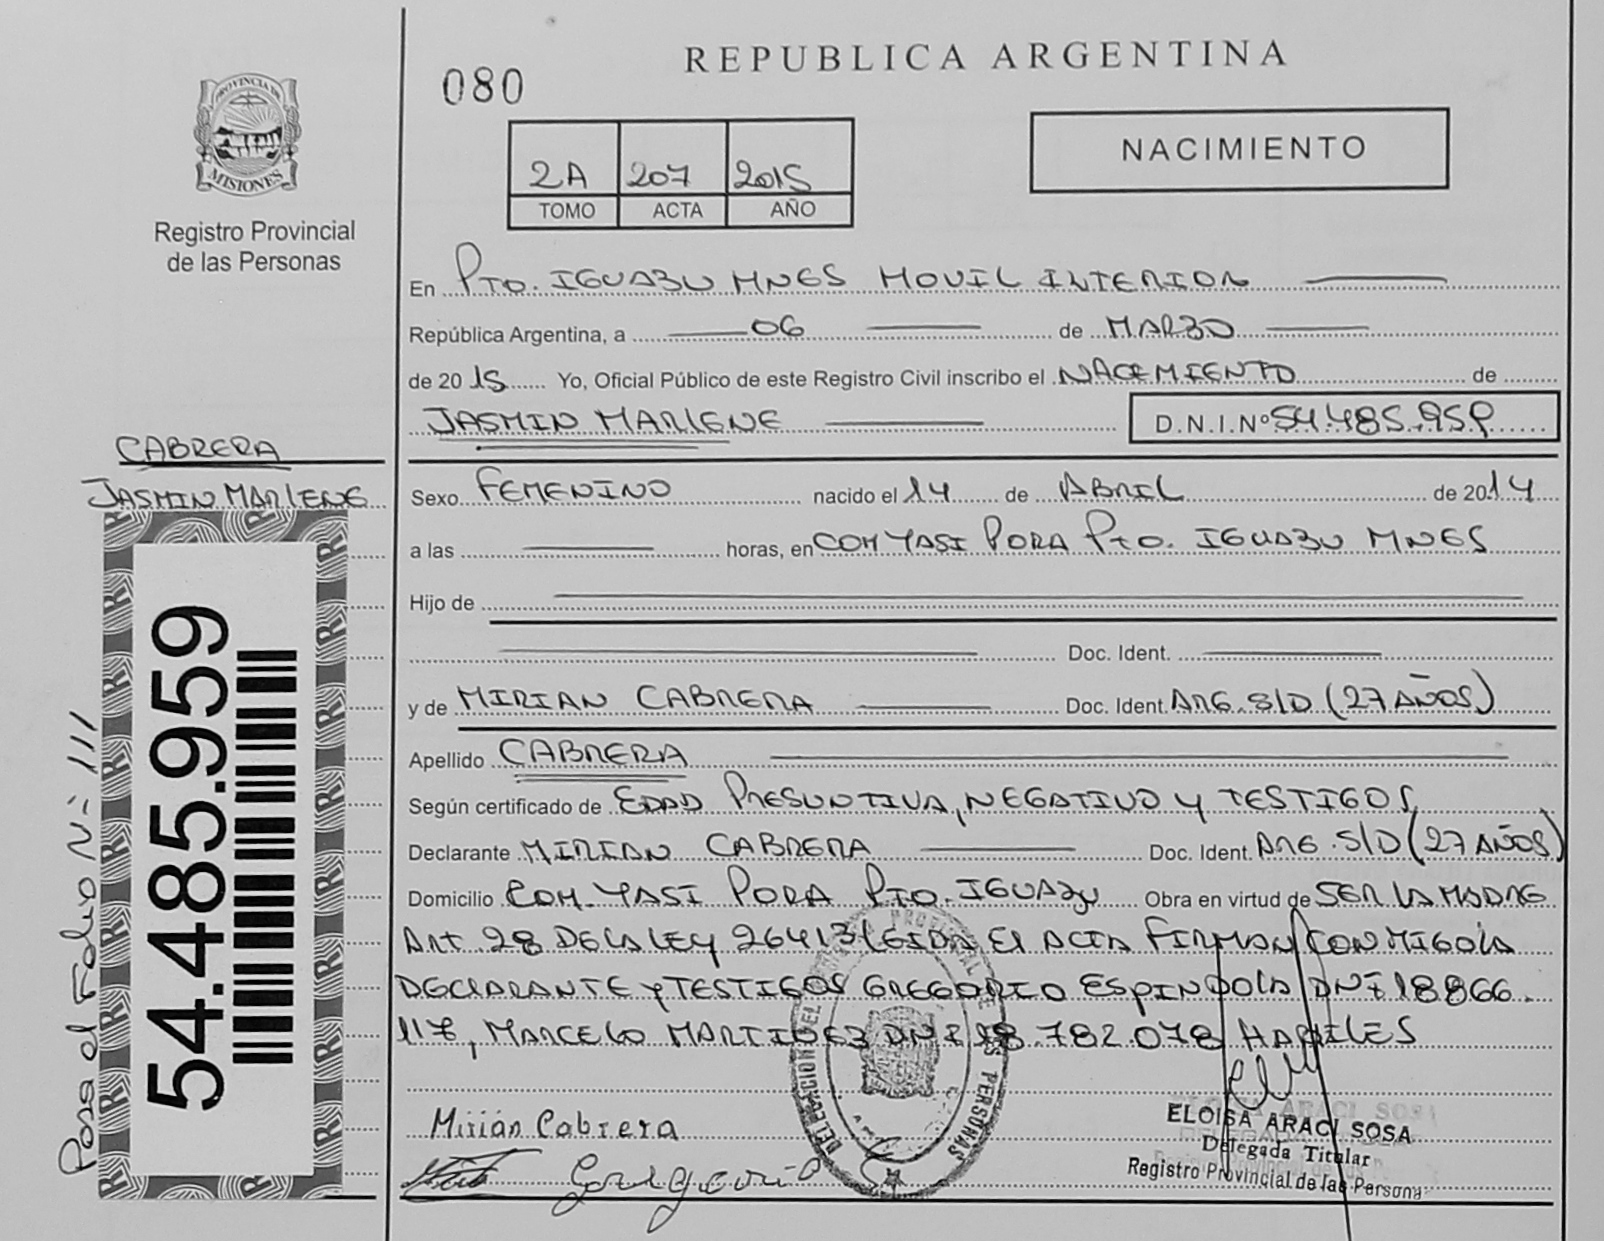 REPUBLICA ARGENTINA
080
NACIMIENTO
2A 207 2015
TOMO ACTA AÑO
PROVINCIA DE
MISIONES
Registro Provincial
de las Personas
En PTO. IGUAZU MNES MOVIL INTERIOR
República Argentina, a 06 de MARZO
de 2015 Yo, Oficial Público de este Registro Civil inscribo el NACIMIENTO de
JASMIN MARLENE D.N.I.Nº 54.485.959
CABRERA
JASMIN MARLENE
Sexo FEMENINO nacido el 14 de ABRIL de 2014
a las horas, en COM YASI PORA PTO. IGUAZU MNES
Hijo de
Doc. Ident.
y de MIRIAN CABRERA Doc. Ident. ARG. S/D (27 AÑOS)
Apellido CABRERA
Según certificado de EDAD PRESUNTIVA, NEGATIVO Y TESTIGOS
Declarante MIRIAN CABRERA Doc. Ident. ARG. S/D (27 AÑOS)
Domicilio COM. YASI PORA PTO. IGUAZU Obra en virtud de SER LA MADRE
ART 28 DE LA LEY 26413 LEIDA EL ACTA FIRMAN CONMIGO LA
DECLARANTE Y TESTIGOS GREGORIO ESPINDOLA DNI 18866.
117, MARCELO MARTINEZ DNI 18.782.078 HABILES
54.485.959
Pasa al Folio Nº 111
Mirián Cabrera
ELOISA ARACI SOSA
Delegada Titular
Registro Provincial de las Personas